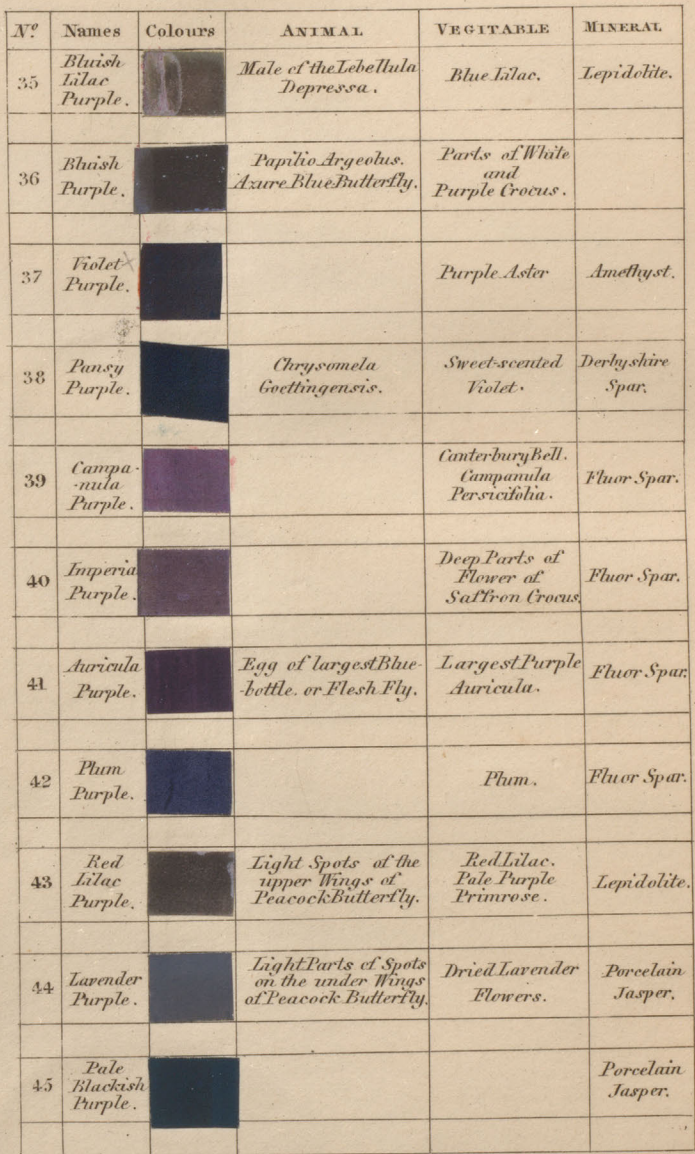 Nº Names Colours ANIMAL VEGITABLE MINERAL
35
Bluish
Lilac
Purple.
Male of the Lebellula
Depressa.
Blue Lilac.
Lepidolite.
36
Bluish
Purple.
Papilio Argeolus.
Azure Blue Butterfly.
Parts of White
and
Purple Crocus.
37
Violet
Purple.
Purple Aster
Amethyst.
38
Pansy
Purple.
Chrysomela
Goettingensis.
Sweet-scented
Violet.
Derbyshire
Spar.
39
Campa-
-nula
Purple.
Canterbury Bell.
Campanula
Persicifolia.
Fluor Spar.
40
Imperia
Purple.
Deep Parts of
Flower of
Saffron Crocus.
Fluor Spar.
41
Auricula
Purple.
Egg of largest Blue-
-bottle. or Flesh Fly.
Largest Purple
Auricula.
Fluor Spar.
42
Plum
Purple.
Plum.
Fluor Spar.
43
Red
Lilac
Purple.
Light Spots of the
upper Wings of
Peacock Butterfly.
Red Lilac.
Pale Purple
Primrose.
Lepidolite.
44
Lavender
Purple.
Light Parts of Spots
on the under Wings
of Peacock Butterfly.
Dried Lavender
Flowers.
Porcelain
Jasper.
45
Pale
Blackish
Purple.
Porcelain
Jasper.